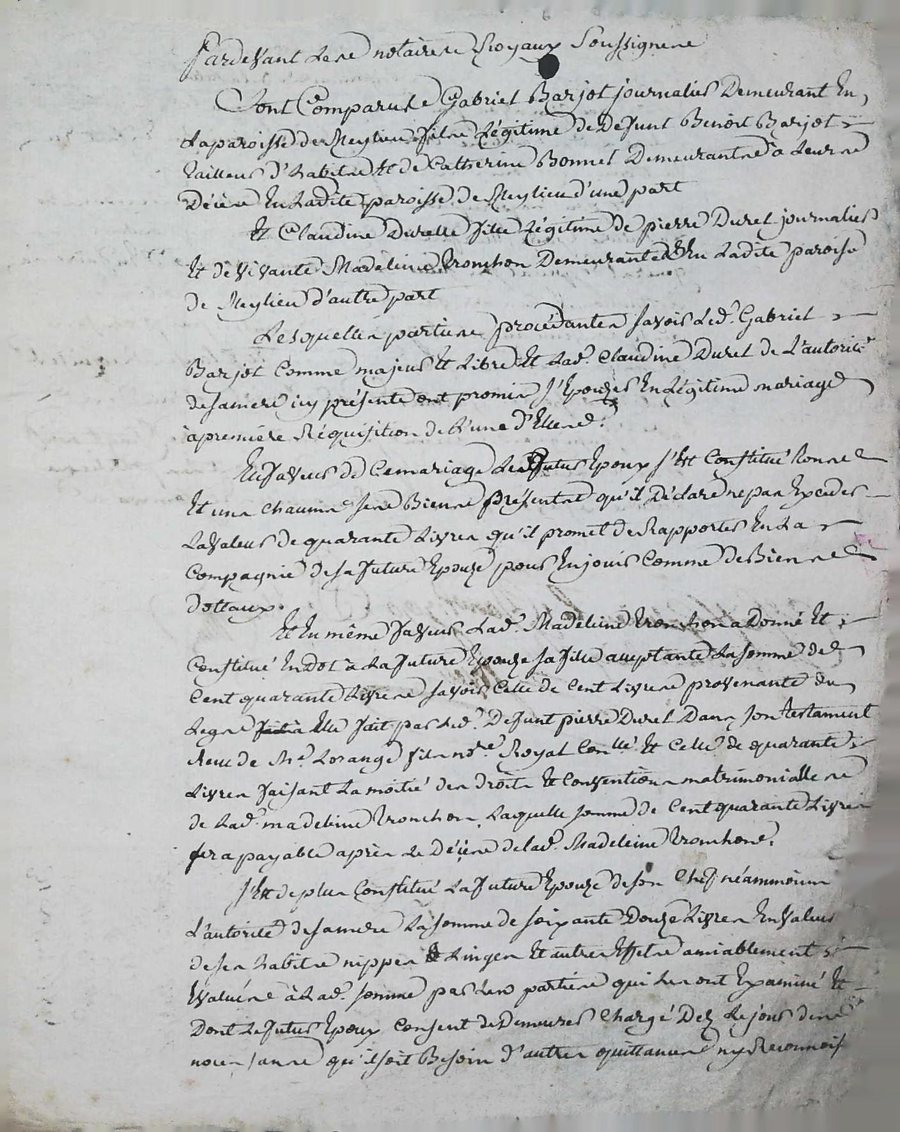 Pardevant Les notaires Royaux Soussignés
Sont Comparus Gabriel Barjot journalier Demeurant En
La paroisse de Meylieu fils Légitime de Defunt Benoît Barjot
tailleur d'habits Et de Catherine Bonnet Demeurants à Leurs
Décès En Ladite paroisse de Meylieu d'une part
Et Claudine Durelle fille Légitime de pierre Duret journalier
Et de vivante Madeleine Tronchon Demeurante En Ladite paroisse
de Meylieu d'autre part
Lesquelles parties procédantes savoir Led. Gabriel
Barjot Comme majeur Et Libre Et Lad. Claudine Duret de L'autorité
de sa mere icy présente ont promis s'Epouser En Légitime mariage
à première Réquisition de L'une d'Elles.
En faveur de Ce mariage Le futur Epoux s'Est Constitué
Et une chaumiere Ses Biens présents qu'il Déclare ne pas Exceder
La valeur de quarante Livres qu'il promet de Rapporter En La
Compagnie de sa future Epouse pour En jouir Comme de Biens
dotaux.
Et En même faveur Lad. Madeleine Tronchon a Donné Et
Constitué En dot à La future Epouse sa fille acceptante La somme de
Cent quarante Livres savoir Celle de Cent Livres provenante du
Legs à Elle fait par Led. Defunt pierre Duret Dans son testament
Reçu de Me. Lorange fils nore. Royal Et Celle de quarante
Livres faisant La moitié des droits Et Conventions matrimonialles
de Lad. madeleine Tronchon, Laquelle somme de Cent quarante Livres
sera payable après Le Décès de Lad. Madeleine Tronchon.
S'Est de plus Constitué La future Epouse de son Chef néammoins
L'autorité de sa mere La somme de soixante Douze Livres En valeur
de ses habits nippes Linges Et autres Effets amiablement
Evalués à Lad. somme par Les parties qui Les ont Examiné Et
Dont Le futur Epoux Consent de Demeurer Chargé Dez Le jour de
noces sans qu'il soit Besoin d'autres quittances ny Reconnois